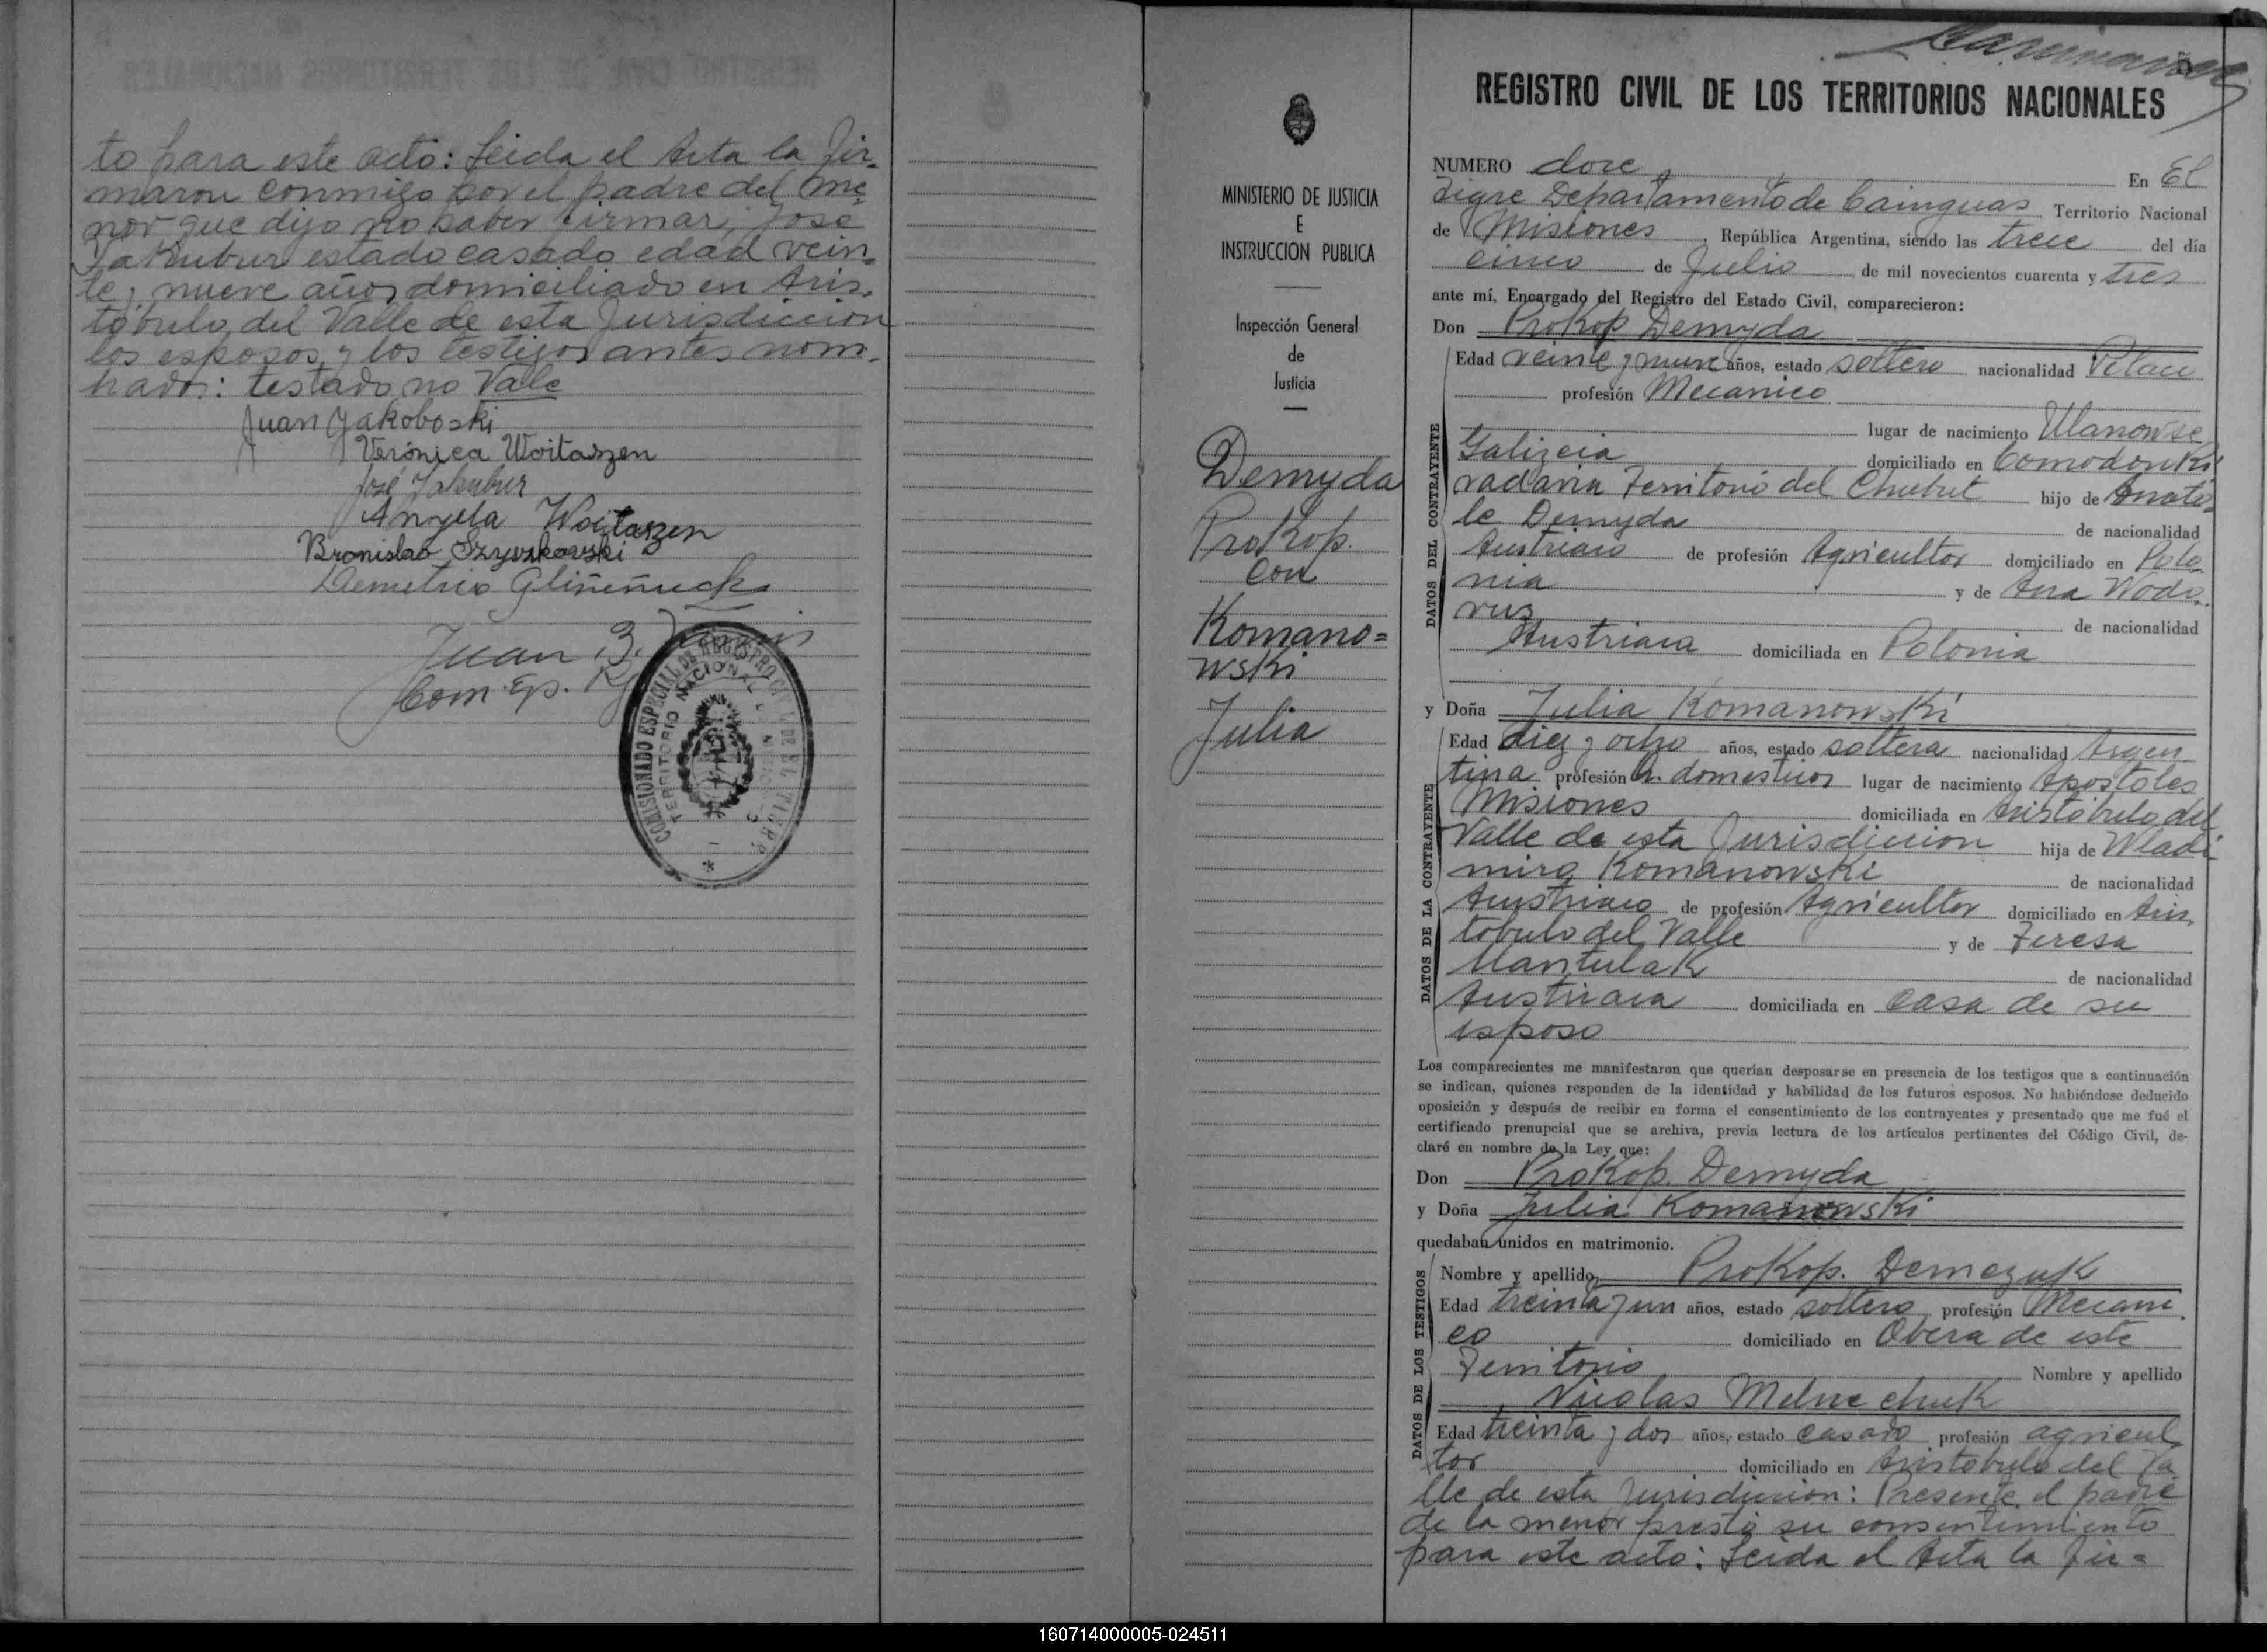 to para este acto: Leida el Acta la fir-
maron conmigo por el padre del me-
nor que dijo no saber firmar, José
Jakubur estado casado edad vein-
te y nueve años domiciliado en Aris-
tobulo del Valle de esta Jurisdiccion
los esposos y los testigos antes nom-
brados: testado no Vale
Juan Jakoboski
Verónica Woitaszen
José Jakubur
Angela Woitaszen
Bronislao Szyszkowski
Demetrio Gliñeñuck
Juan B.
Com. Esp.
COMISIONADO ESPECIAL DE REGISTRO CIVIL DE EL TIGRE
TERRITORIO NACIONAL DE MISIONES
MINISTERIO DE JUSTICIA
E
INSTRUCCION PUBLICA
Inspección General
de
Justicia
Demyda
Prokop.
con
Komano=
wski
Julia
REGISTRO CIVIL DE LOS TERRITORIOS NACIONALES
NUMERO doce En El
Tigre Departamento de Cainguas Territorio Nacional
de Misiones República Argentina, siendo las trece del día
cinco de Julio de mil novecientos cuarenta y tres
ante mí, Encargado del Registro del Estado Civil, comparecieron:
Don Prokop Demyda
DATOS DEL CONTRAYENTE
Edad veinte y nueve años, estado soltero nacionalidad Polaco
profesión Mecanico
lugar de nacimiento Ulanowse
Galizcia domiciliado en Comodoro Ri
vadavia Territorio del Chubut hijo de Anato-
le Demyda de nacionalidad
Austriaco de profesión Agricultor domiciliado en Polo-
nia y de Ana Wodo-
rus de nacionalidad
Austriaca domiciliada en Polonia
y Doña Julia Komanowski
DATOS DE LA CONTRAYENTE
Edad diez y ocho años, estado soltera nacionalidad Argen
tina profesión Q. domesticos lugar de nacimiento Apostoles
Misiones domiciliada en Aristobulo del
Valle de esta Jurisdiccion hija de Wladi
miro Komanowski de nacionalidad
Austriaco de profesión Agricultor domiciliado en Aris-
tobulo del Valle y de Teresa
Mantulak de nacionalidad
Austriaca domiciliada en casa de su
esposo
Los comparecientes me manifestaron que querían desposarse en presencia de los testigos que a continuación
se indican, quienes responden de la identidad y habilidad de los futuros esposos. No habiéndose deducido
oposición y después de recibir en forma el consentimiento de los contrayentes y presentado que me fué el
certificado prenupcial que se archiva, previa lectura de los artículos pertinentes del Código Civil, de-
claré en nombre de la Ley que:
Don Prokop. Demyda
y Doña Julia Komanowski
quedaban unidos en matrimonio.
DATOS DE LOS TESTIGOS
Nombre y apellido Prokop. Demezuk
Edad treinta y un años, estado soltero profesión Mecani
co domiciliado en Obera de este
Territorio Nombre y apellido
Nicolas Melnechuk
Edad treinta y dos años, estado casado profesión agricul
tor domiciliado en Aristobulo del Va
lle de esta Jurisdiccion: Presente el padre
de la menor prestó su consentimiento
para este acto: Leida el Acta la fir=
160714000005-024511